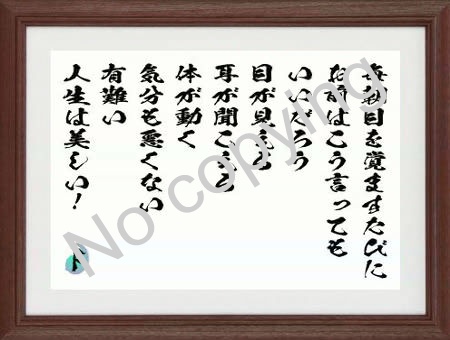 毎朝目を覚ますたびに
お前はこう言っても
いいだろう
目が見える
耳が聞こえる
体が動く
気分も悪くない
有難い
人生は美しい！
No copying